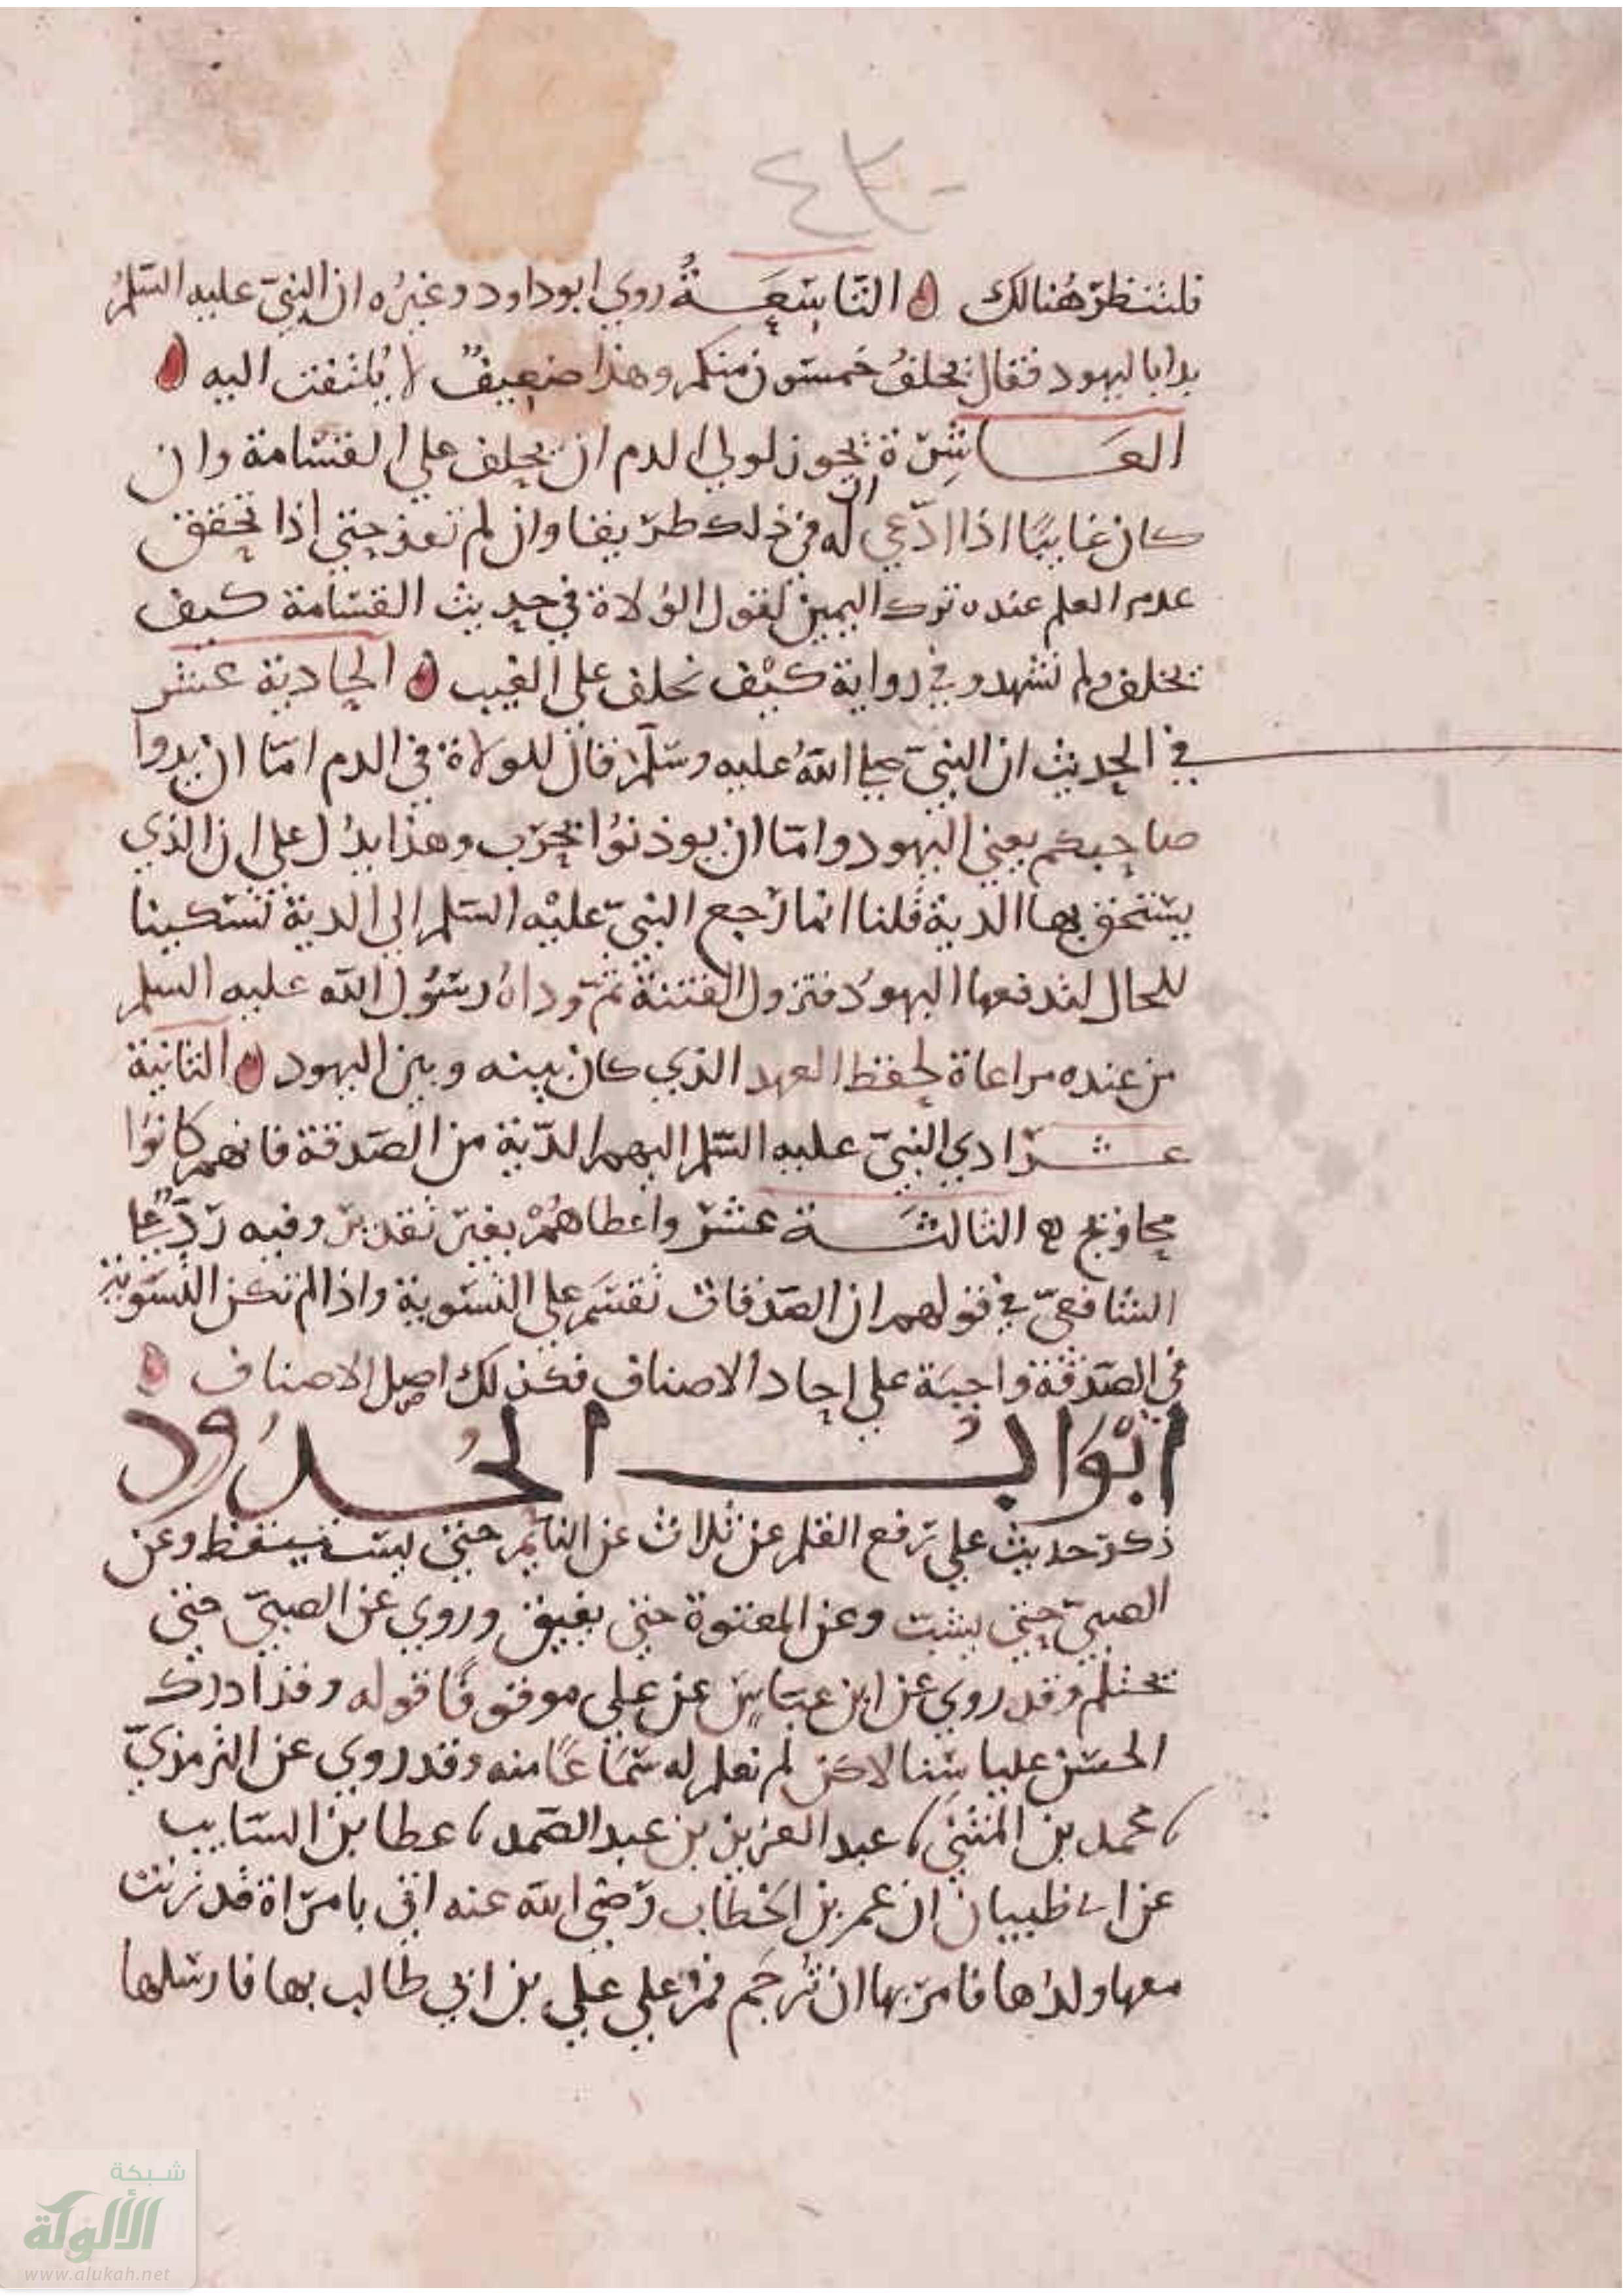 ٤٣٠
فلتنظر هُنالك ه التّاسِعَةُ روي ابوداود وغيرُه ان النبيّ عليه السّلمُ
بدا باليهود فقال يحلفُ خمسون منكم وهذا ضعِيفٌ لا يُلتفت اليه ه
العَاشِرة يجوز لولي الدم ان يحلف على القسامة وان
كان غايبًا اذا ادّعي ان له في ذلك طريقا وان لم تعد حتى اذا تحقق
عدم العلم عنده ترك اليمين لقول الوُلاة في حديث القسامة كيف
نحلف ولم نشهد وفي رواية كيْف نحلف على الغيب ه الحادية عشر
في الحديث ان النبيّ صلى اللهُ عليه وسلّم قال للولاة في الدم امّا ان يدوا
صاحبكم يعني اليهود وامّا ان يوذنوُا بحَرب وهذا يدُل على ان الذي
يستحق بها الدية قلنا انما رَجع النبيّ عليْه السلم الى الدية تسكينا
للحال لتدفعها اليهودُ فتزول الفتنة ثمّ وداهُ رسُول الله عليه السلم
من عنده مراعاة لحفظ العهد الذي كان بينه وبين اليهود ه الثانية
عشر ادي النبيّ عليه السّلم اليهم الدّية من الصّدقة فانهم كانوُا
محاويج ه الثالثَة عشر واعطاهُمْ بغير تقدير وفيه رَدٌّ على
الشافعيّ في قولهم ان الصّدقات تقسَم على التسوية واذا لم تكن التسوية
في الصّدقة واجبَة على احاد الاصناف فكذلك اصل الاصناف ه
ابْوَابُ الحُدُود
ذكر حديث علي رفع القلم عن ثلاث عن النايم حتى يستيقظ وعن
الصبيّ حتى يشبّ وعن المعتوه حتى يفيق وروي عن الصبيّ حتى
يحتلم وقد روي عن ابن عبّاس عن علي موقوفًا قوله وقد ادرك
الحسَن عليا سنا لاكن لم نعلم له سَماعًا منه وقد روي عن الترمذيّ
محمد بن المثنى عبد العزيز بن عبد الصّمد عطا بن السّايب
عن ابي ظبيان ان عمر بن الخطاب رَضي الله عنه اتي بامرَاة قد زنت
معها ولدُها فامر بها ان تُرجَم فمرّ علي علي بن ابي طالب بها فارسَلها
شبكة
الألوكة
www.alukah.net